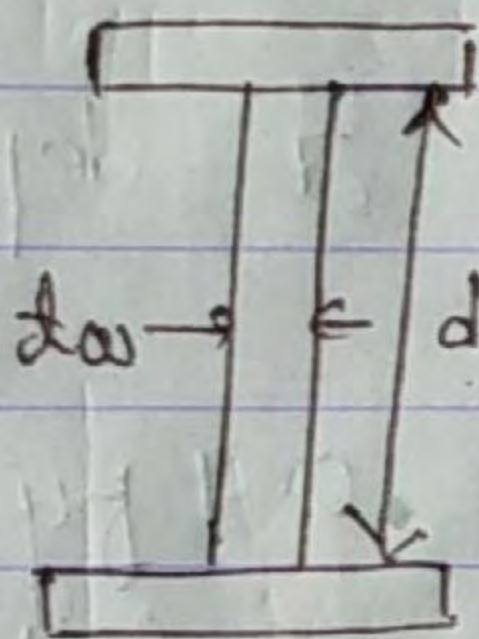 tw d